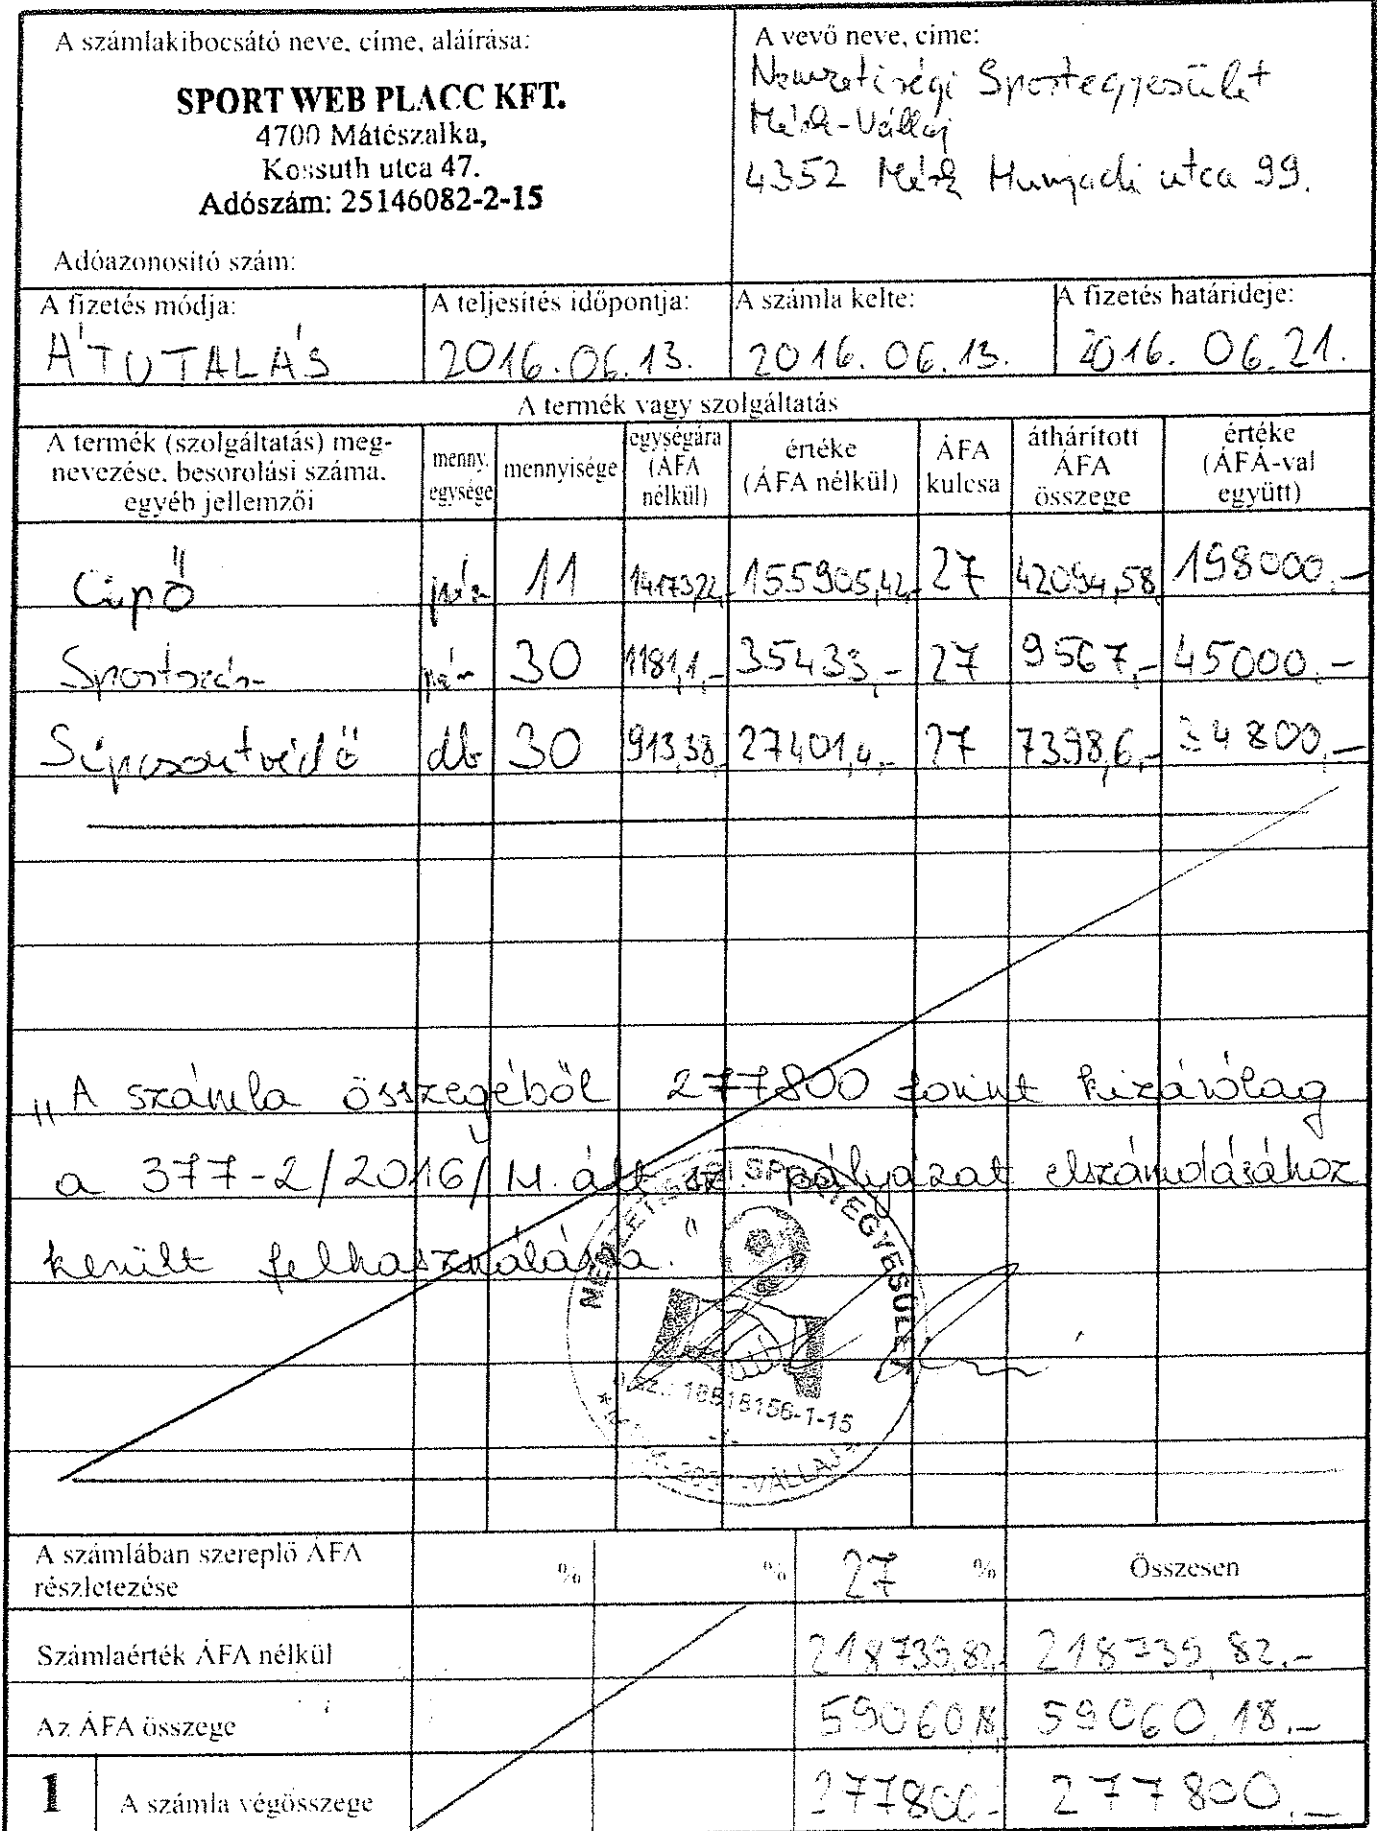 A számlakibocsátó neve, címe, aláírása:
SPORT WEB PLACC KFT.
4700 Mátészalka,
Kossuth utca 47.
Adószám: 25146082-2-15
Adóazonosító szám:
A vevő neve, címe:
Nemzetiségi Sportegyesület
Mérk-Vállaj
4352 Mérk Hunyadi utca 99.
A fizetés módja:
ÁTUTALÁS
A teljesítés időpontja:
2016.06.13.
A számla kelte:
2016.06.13.
A fizetés határideje:
2016.06.21.
A termék vagy szolgáltatás
A termék (szolgáltatás) meg-
nevezése, besorolási száma,
egyéb jellemzői
menny.
egysége
mennyisége
egységára
(ÁFA
nélkül)
értéke
(ÁFA nélkül)
ÁFA
kulcsa
áthárított
ÁFA
összege
értéke
(ÁFÁ-val
együtt)
Cipő pár 11 14173,22,- 155905,42,- 27 42094,58 198000,-
Sportszár pár 30 1181,1,- 35433,- 27 9567,- 45000,-
Sípcsontvédő db 30 913,38 27401,4,- 27 7398,6,- 34800,-
„A számla összegéből 277800 forint kizárólag
a 377-2/2016/M.ált.sz. pályázat elszámolásához
került felhasználásra."
NEMZETISÉGI SPORTEGYESÜLET
18818156-1-15
-VÁLLAJ
A számlában szereplő ÁFA
részletezése
% % 27 % Összesen
Számlaérték ÁFA nélkül 218739,82,- 218739,82.-
Az ÁFA összege 59060,18 59060,18.-
1 A számla végösszege 277800- 277800.-